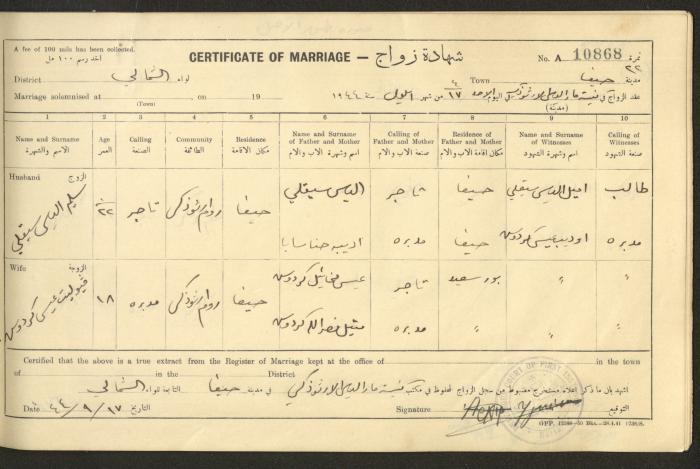 A fee of 100 mils has been collected.
اخذ رسم ١٠٠ مل
CERTIFICATE OF MARRIAGE – شهادة زواج
No. A 10868 نمرة
٢٢
District الشمالي لواء
Town حيفا مدينة
Marriage solemnised at , on 19
(Town)
عقد الزواج في كنيسة مار الياس الارثوذكسي اليوم الاحد ١٧ من شهر ايلول سنة ١٩٤٤
(مدينة)
1 2 3 4 5 6 7 8 9 10
Name and Surname الاسم والشهرة
Age العمر
Calling الصنعة
Community الطائفة
Residence مكان الاقامة
Name and Surname of Father and Mother اسم وشهرة الاب والام
Calling of Father and Mother صنعة الاب والام
Residence of Father and Mother مكان اقامة الاب والام
Name and Surname of Witnesses اسم وشهرة الشهود
Calling of Witnesses صنعة الشهود
Husband الزوج
سليم الياس سيقلي ٢٢ تاجر روم ارثوذكس حيفا الياس سيقلي تاجر حيفا اميل الياس سيقلي طالب
اديبه حنا سابا مدبره حيفا اوديب عيسى كردوس مدبره
Wife الزوجة
فيوليت عيسى كردوس ١٨ مدبره روم ارثوذكس حيفا عيسى مخائيل كردوس تاجر بور سعيد " "
نصرالله كردوس مدبره " " "
Certified that the above is a true extract from the Register of Marriage kept at the office of in the town
of in the District
اشهد بان ما ذكر اعلاه مستخرج مضبوط من سجل الزواج المحفوظ في مكتب كنيسة مار الياس الارثوذكسي في مدينة حيفا التابعة للواء الشمالي
Date ١٧/٩/٤٤ التاريخ
Signature التوقيع
GPP. 12588—50 Bks.—28.4.41 1738/S.